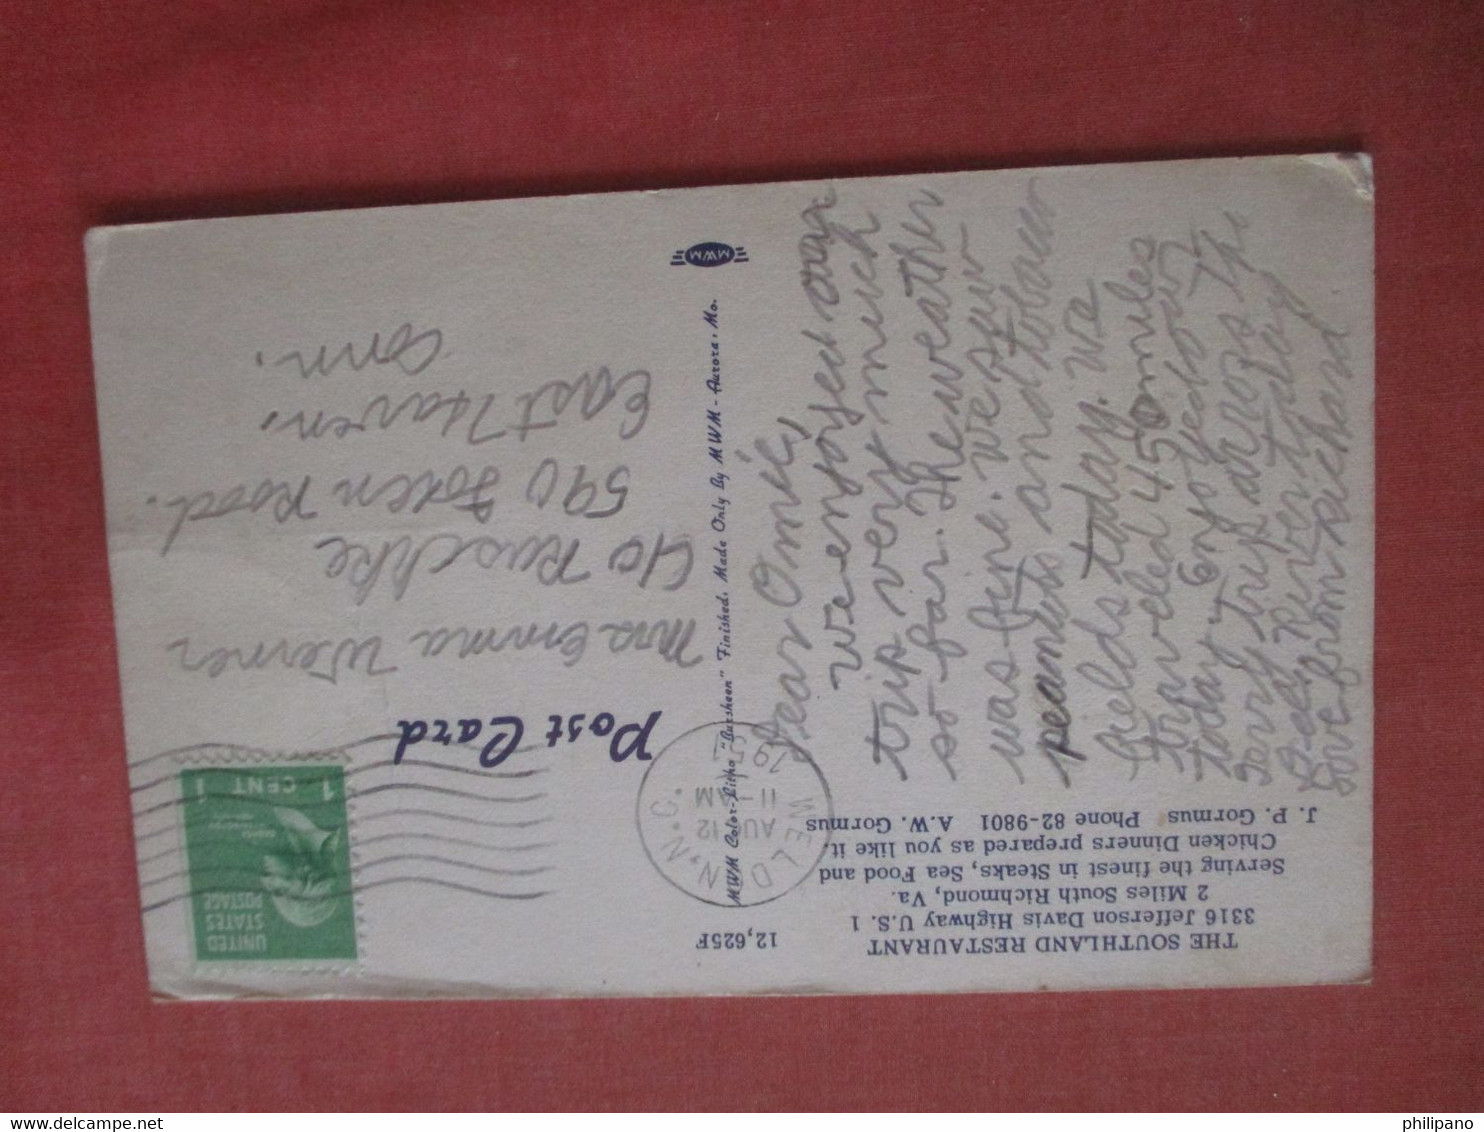 THE SOUTHLAND RESTAURANT
3316 Jefferson Davis Highway U.S. 1
2 Miles South Richmond, Va.
Serving the finest in Steaks, Sea Food and
Chicken Dinners prepared as you like it.
J. P. Gormus Phone 82-9801 A.W. Gormus
Dear Omi,
We enjoyed our
trip very much
so far. The weather
was fine. We saw
peanuts and tobacco
fields today. We
traveled 450 miles
today. Enjoyed our
ferry trip across the
Del. River today
Love from Richard
12,625F
MWM Color-Litho "Bursheen" Finished, Made Only By MWM - Aurora, Mo.
MWM
WELDON, N.C.
AUG 12
11 - AM
195
UNITED
STATES
POSTAGE
1 CENT 1
Post Card
Mrs Emma Werner
c/o Raschke
590 Foxen Road.
East Haven,
Conn.
philipano